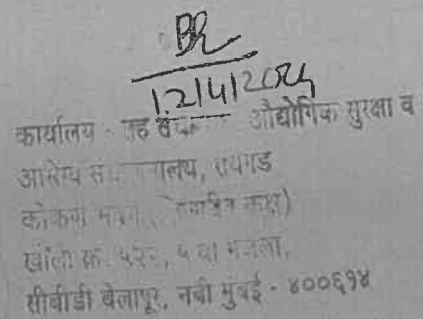 12/4/2024
कार्यालय - सह औद्योगिक सुरक्षा व
आरोग्य संचालनालय, रायगड
कोकण भवन,
खोली क्र. ५ वा मजला,
सीबीडी बेलापूर, नवी मुंबई - ४००६१४